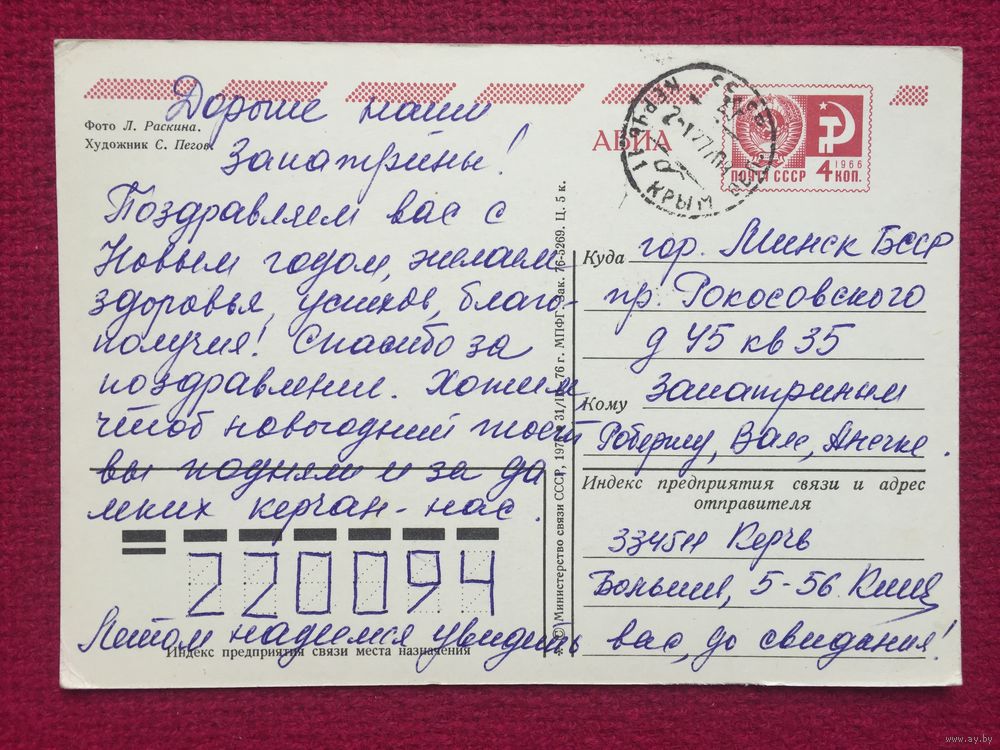 Дорогие наши
Запатрины!
Поздравляем вас с
Новым годом, желаем
здоровья, успехов, благо-
получия! Спасибо за
поздравления. Хотим,
чтоб новогодний тост
вы подняли и за да
леких керчан - нас.
220094
Летом надеемся увидеть вас, до свидания!
Фото Л. Раскина.
Художник С. Пегов.
АВИА
ПОЧТА СССР
1966
4 КОП.
КРЫМ
Куда гор. Минск БССР
пр. Рокосовского
д 45 кв 35
Кому Запатриным
Роберту, Вале, Анечке.
Индекс предприятия связи и адрес
отправителя
Керчь
5-56
Индекс предприятия связи места назначения
© Министерство связи СССР, 76 г. МПФГ. Зак. 76-5269. Ц. 5 к.
www.ay.by